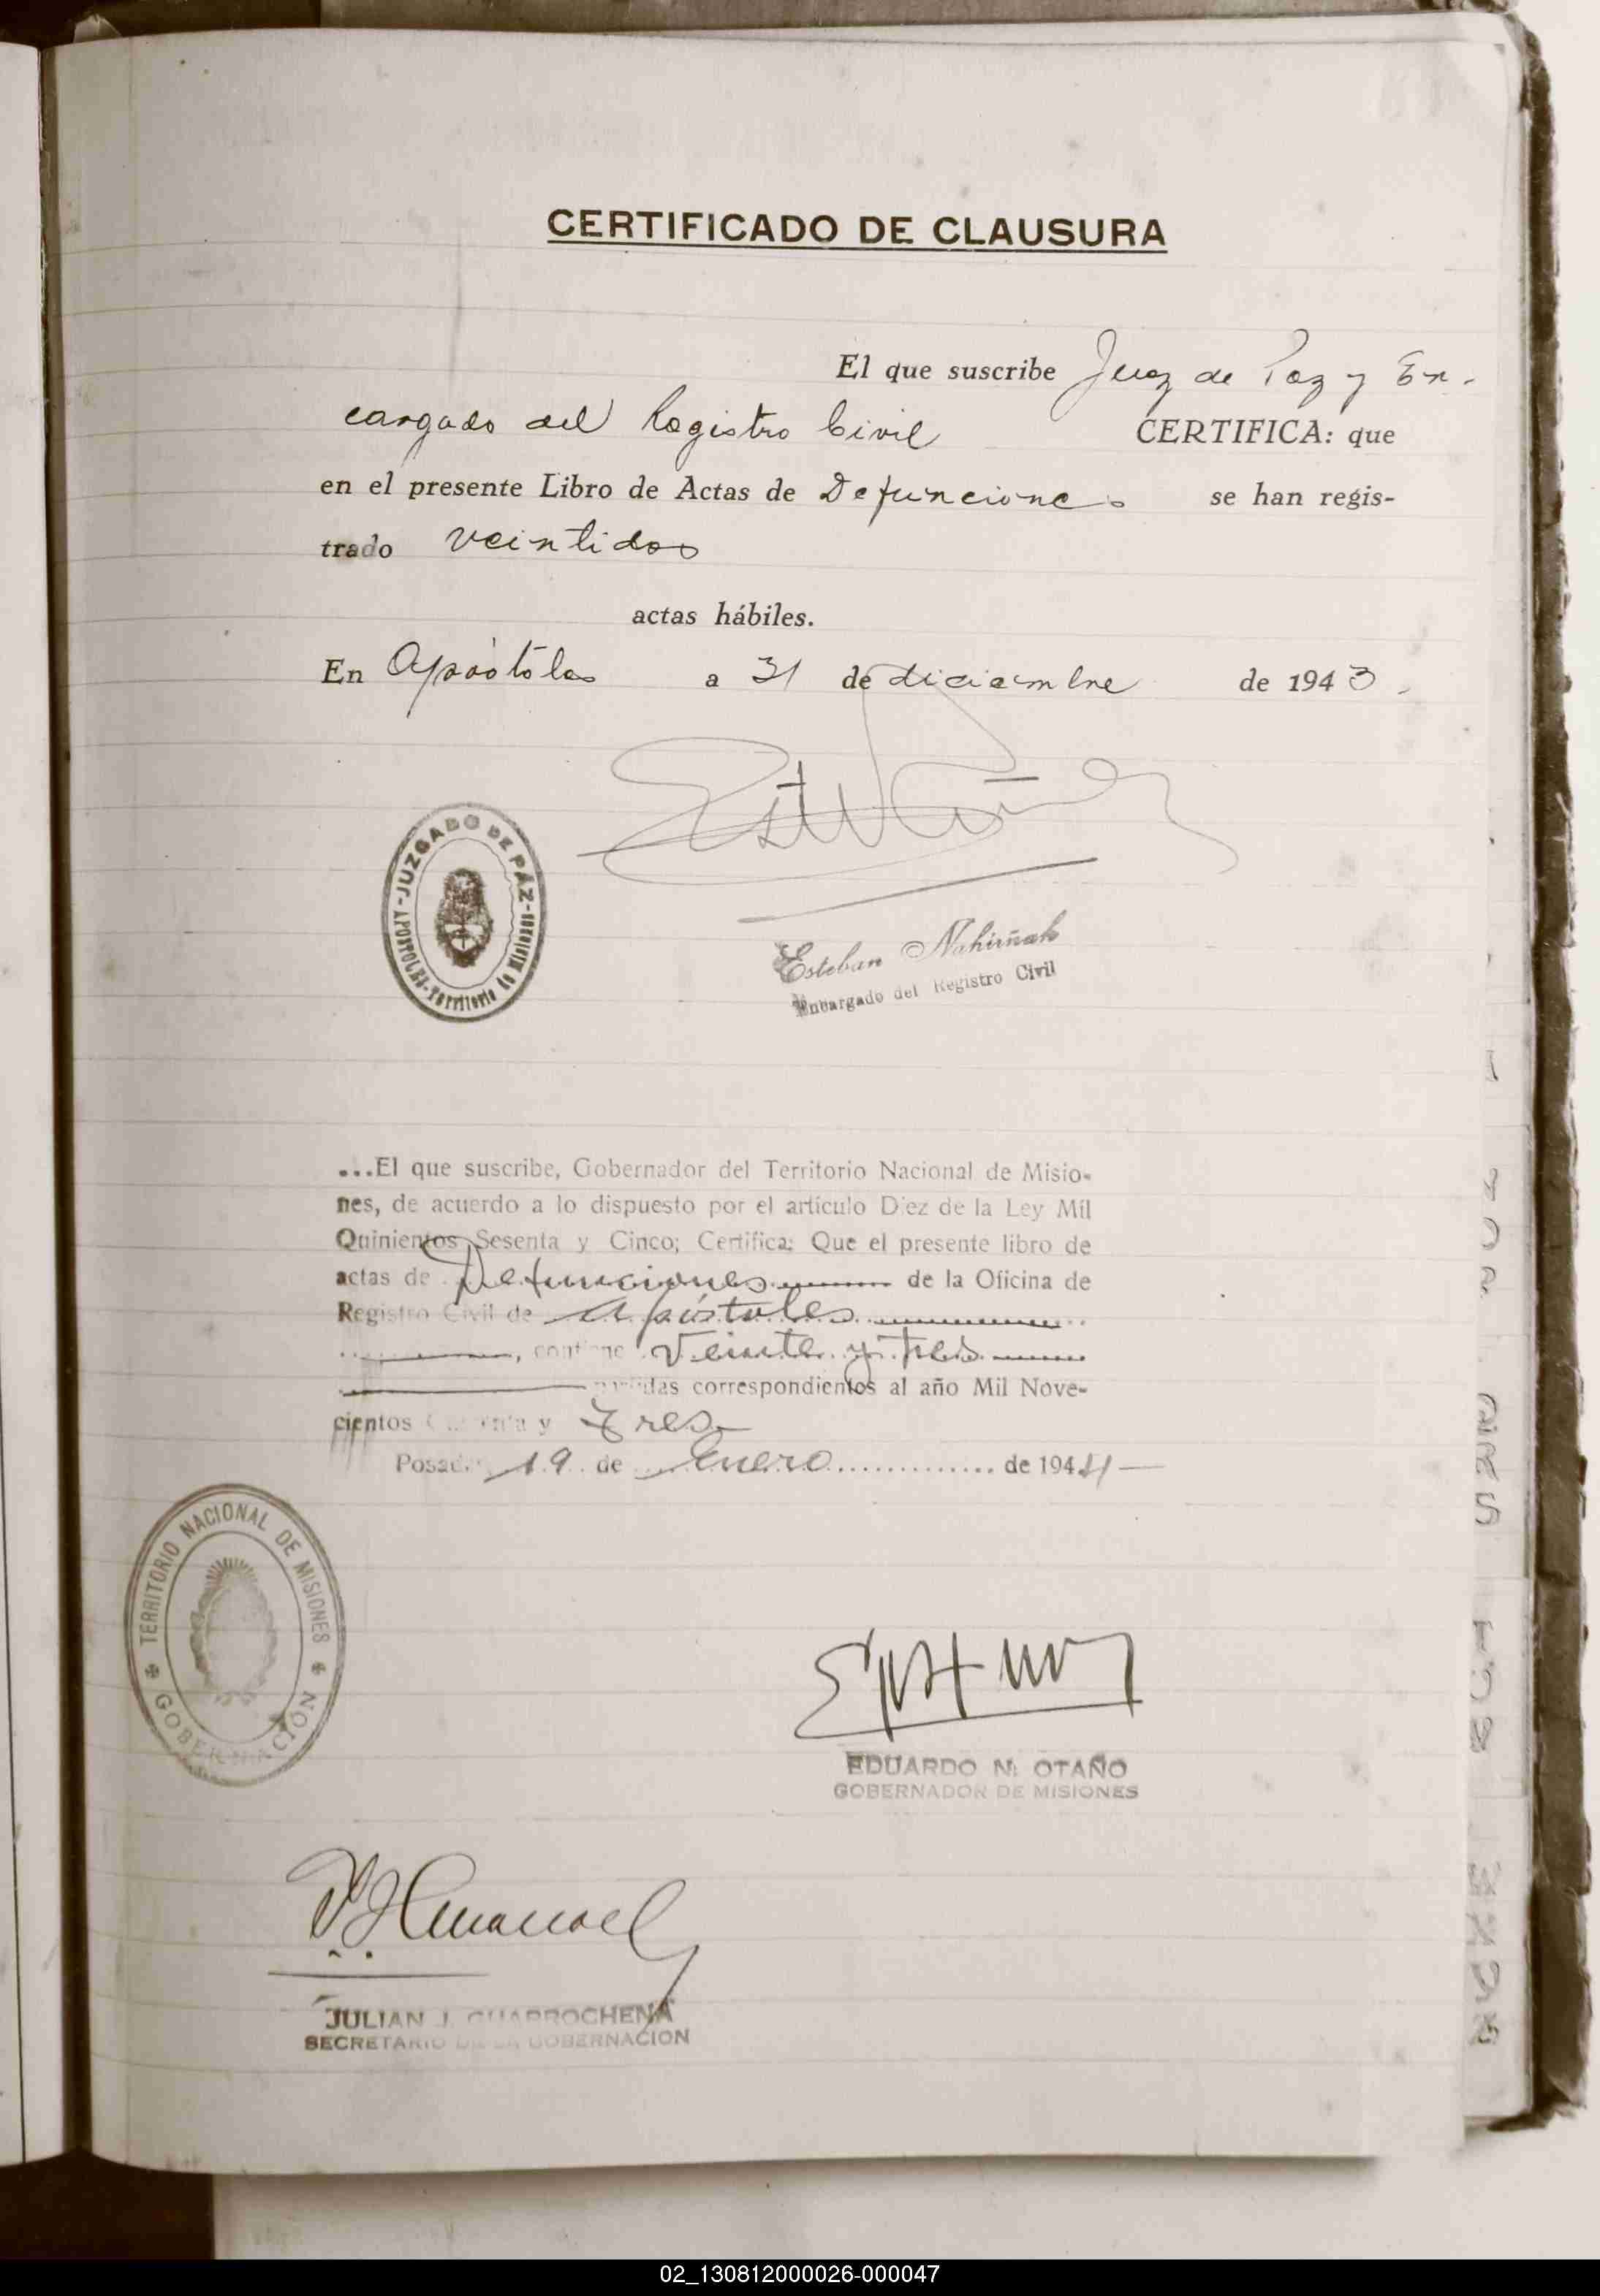 CERTIFICADO DE CLAUSURA
El que suscribe Juez de Paz y En-
cargado del Registro Civil CERTIFICA: que
en el presente Libro de Actas de Defunciones se han regis-
trado veintidos
actas hábiles.
En Apóstoles a 31 de diciembre de 1943.
JUZGADO DE PAZ
APOSTOLES - Territorio de Misiones
Esteban Nahirñak
Encargado del Registro Civil
...El que suscribe, Gobernador del Territorio Nacional de Misio-
nes, de acuerdo a lo dispuesto por el artículo Diez de la Ley Mil
Quinientos Sesenta y Cinco; Certifica: Que el presente libro de
actas de Defunciones de la Oficina de
Registro Civil de Apóstoles
, contiene Veinte y tres
partidas correspondientes al año Mil Nove-
cientos Cuarenta y Tres
Posadas 19 de Enero de 1944
TERRITORIO NACIONAL DE MISIONES
GOBERNACION
EDUARDO N. OTAÑO
GOBERNADOR DE MISIONES
JULIAN J. GUARROCHENA
SECRETARIO DE LA GOBERNACION
02_130812000026-000047